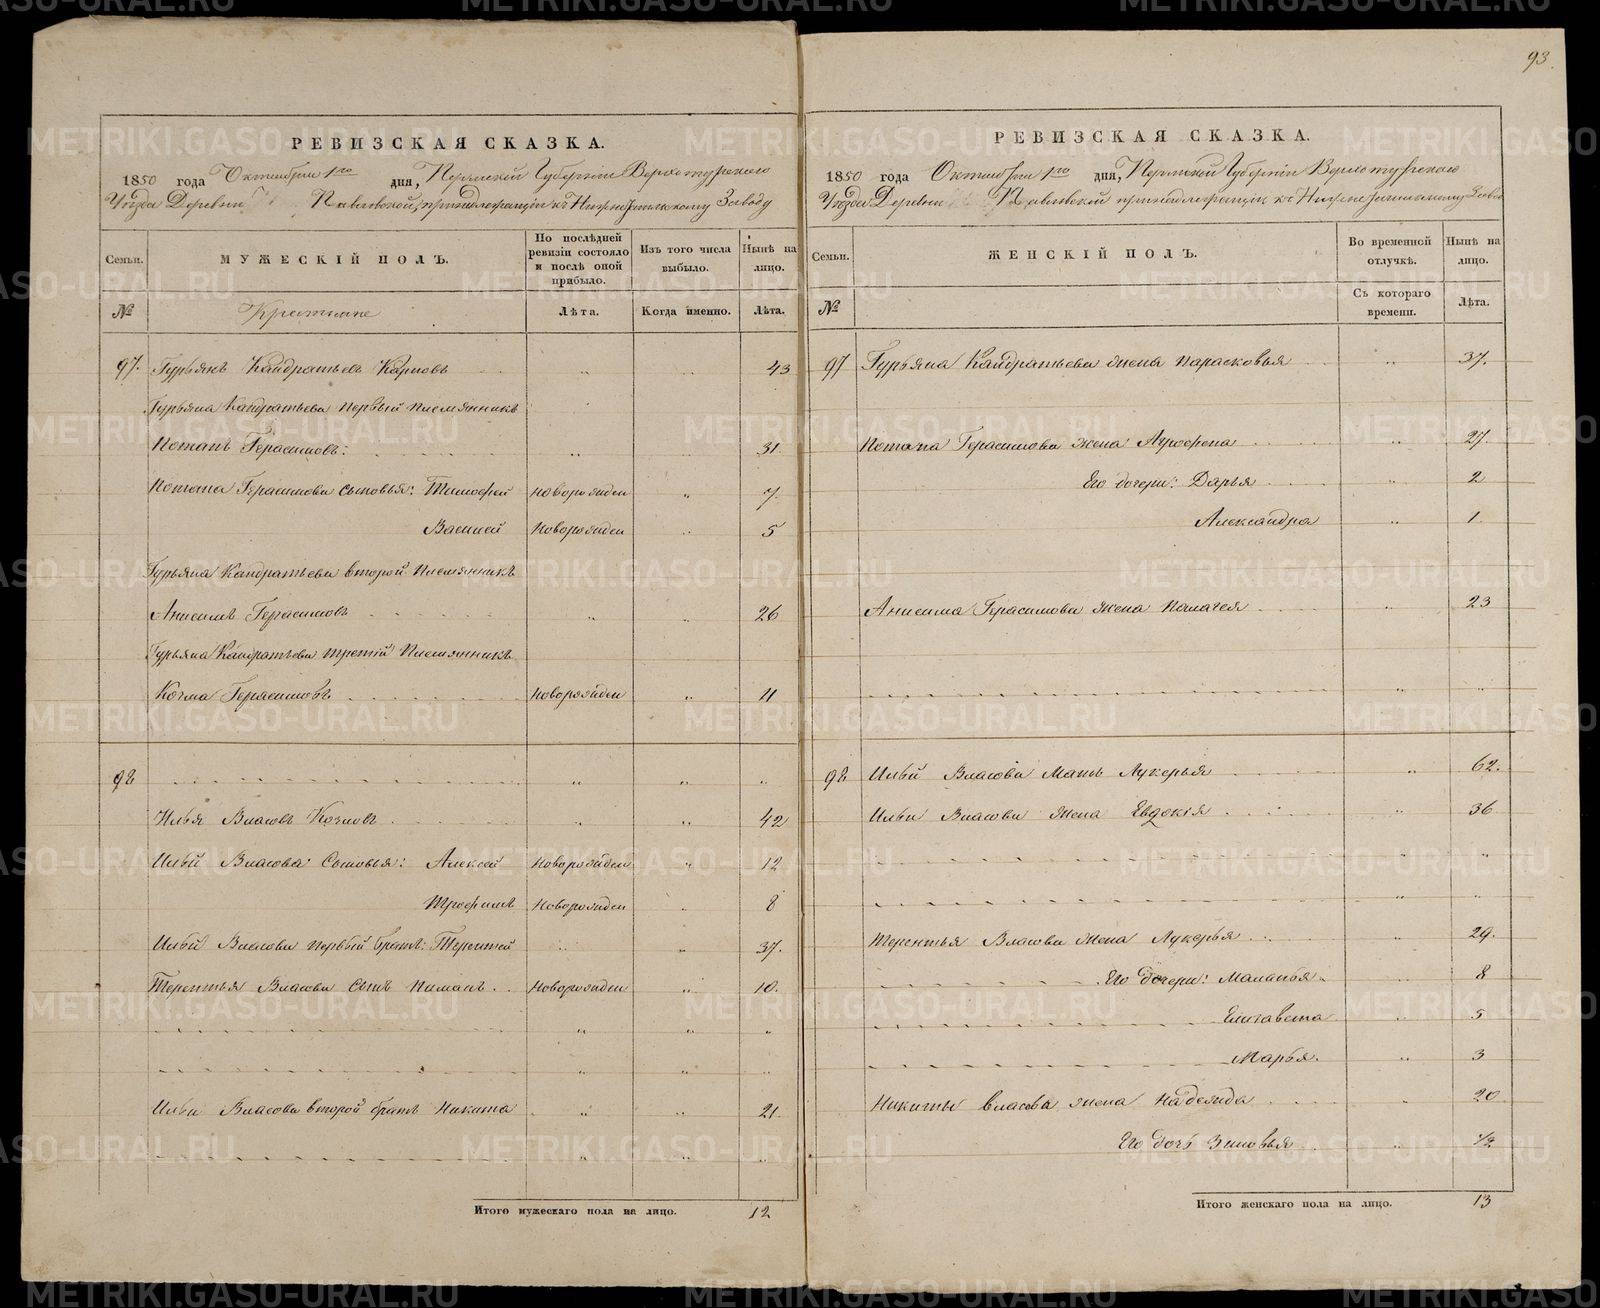 93.
РЕВИЗСКАЯ СКАЗКА.
1850 года Октября 1го дня, Пермской Губернiи Верхотурскаго
Уѣзда Деревни Павловской, принадлежащiи къ Нижнетагильскому Заводу
Семьи. МУЖЕСКIЙ ПОЛЪ. По послѣдней ревизiи состояло и послѣ оной прибыло. Изъ того числа выбыло. Нынѣ на лицо.
№ Крестьяне Лѣта. Когда именно. Лѣта.
97. Гурьянъ Кандратьевъ Карповъ 43
Гурьяна Кандратьева первый племянникъ
Потапъ Герасимовъ: 31
Потапа Герасимова сыновья: Тимофей новорожден 7
Василей Новорожден 5
Гурьяна Кандратьева второй племянникъ
Анисимъ Герасимовъ 26
Гурьяна Кандратьева третiй племянникъ
Козма Герасимовъ новорожден 11
98
Илья Власовъ Козловъ 42
Ильи Власова Сыновья: Алексей Новорожден 12
Трофимъ Новорожден 8
Ильи Власова первый братъ: Терентей 37.
Терентья Власова Сынъ Пиманъ Новорожден 10.
Ильи Власова второй братъ Никита 21
Итого мужескаго пола на лицо. 12
РЕВИЗСКАЯ СКАЗКА.
1850 года Октября 1го дня, Пермской Губернiи Верхотурскаго
Уѣзда Деревни Павловской принадлежащiи къ Нижнетагильскому Заводу
Семьи. ЖЕНСКIЙ ПОЛЪ. Во временной отлучкѣ. Нынѣ на лицо.
№ Съ котораго времени. Лѣта.
97 Гурьяна Кандратьева жена Парасковья 37.
Потапа Герасимова жена Аграфена 27
Его дочери: Дарья 2
Александра 1
Анисима Герасимова жена Палагея 23
98 Ильи Власова Мать Лукерья 62.
Ильи Власова жена Евдокiя 36
Терентья Власова жена Лукерья 29.
Его дочери: Маланья 8
Елизавета 5
Марья. 3
Никиты Власова жена Надежда 20
Его дочь Зиновья 1/2
Итого женскаго пола на лицо. 13
METRIKI.GASO-URAL.RU